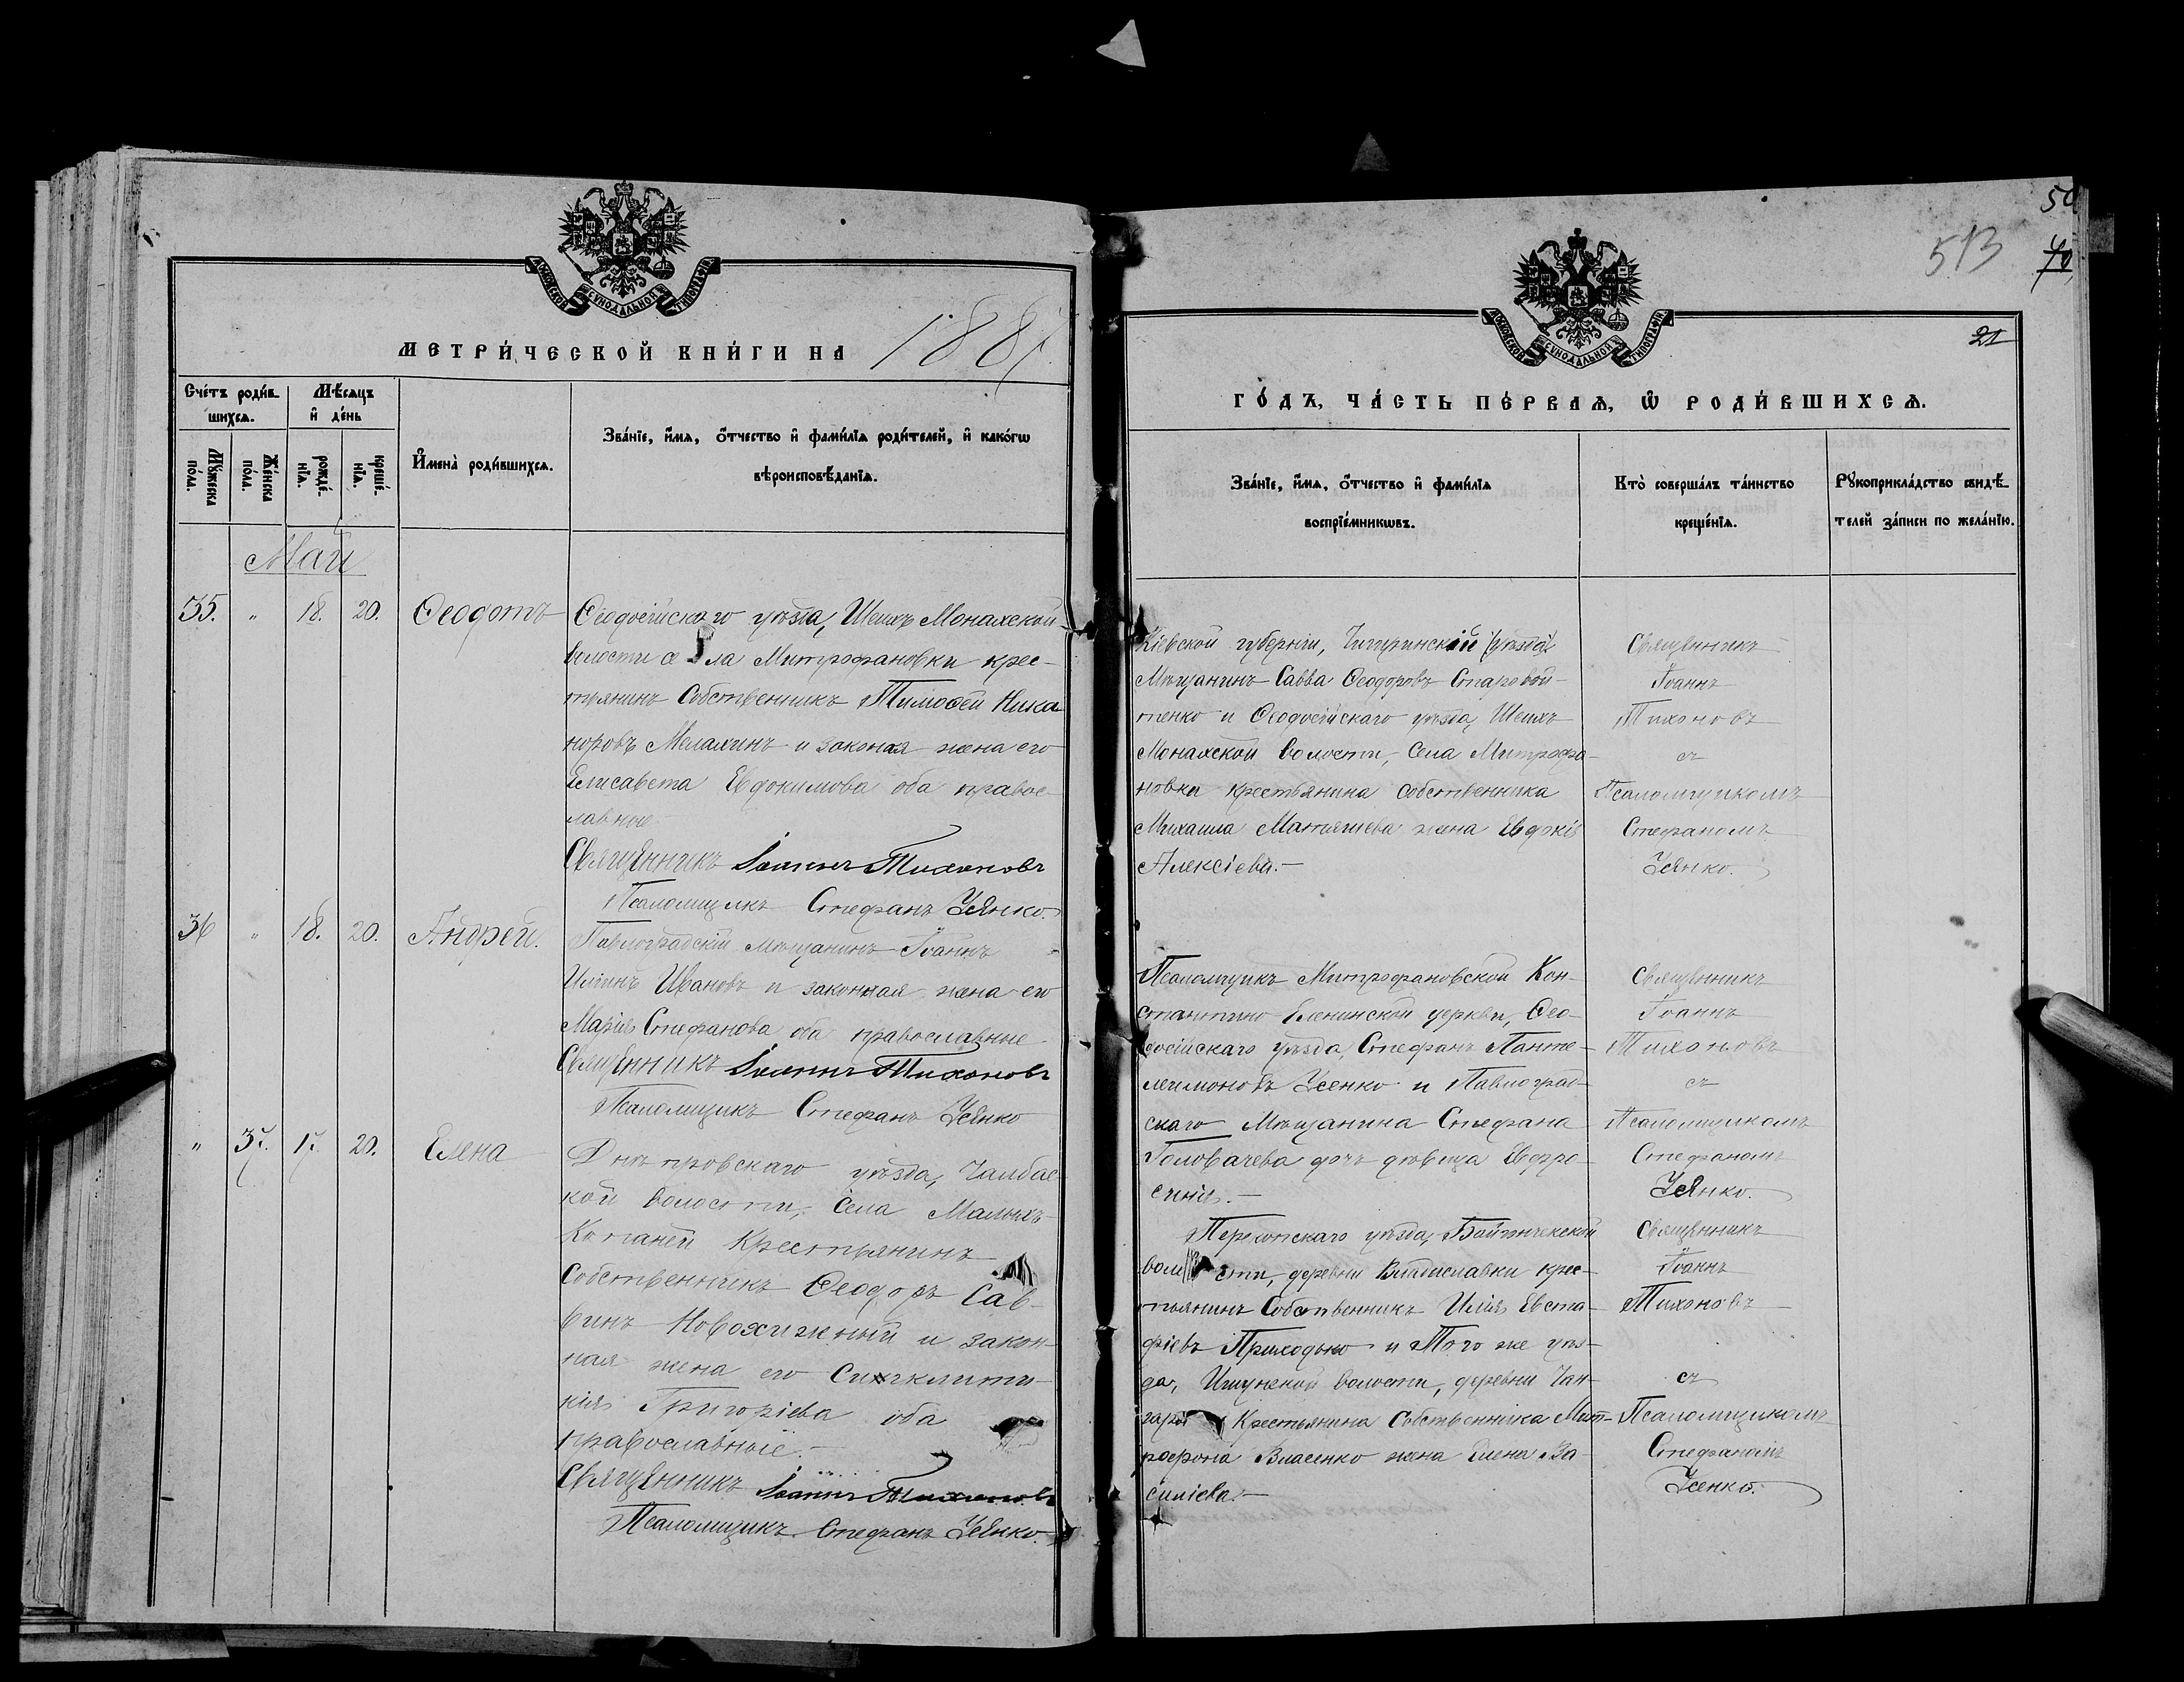 50
513
70
МОСКОВСКОЙ СУНОДАЛЬНОЙ ТИПОГРАФІИ
МЕТРИ́ЧЕСКОЙ КНИ́ГИ НА 1887
Сче́тъ роди́в-
шихсѧ.
Мꙋ́жеска
по́ла.
Же́нска
по́ла.
Мѣ́сѧцъ
и҆ де́нь
рожде́-
нїѧ.
креще́-
нїѧ.
И҆мена̀ роди́вшихсѧ.
Зва́нїе, и҆́мѧ, ѻ҆́тчество и҆ фами́лїѧ роди́телей, и҆ како́гѡ
вѣроисповѣ́данїѧ.
Май
35. " 18. 20. Ѳеодотъ
Ѳеодосійскаго уѣзда, Шеихъ Монахской
волости села Митрофановки крес-
тьянинъ Собственникъ Тимоѳей Ника-
норовъ Мелахинъ и законая жена его
Елисавета Евдокимова оба правос-
лавные.
Священникъ Іоаннъ Тихоновъ
Псаломщикъ Стефанъ Усенко.
36 " 18. 20. Андрей.
Павлоградскій мѣщанинъ Іоаннъ
Илiинъ Ивановъ и законная жена его
Марія Стефанова оба православные
Священникъ Іоаннъ Тихоновъ
Псаломщикъ Стефанъ Усенко
" 37. 17. 20. Елена
Днѣпровскаго уѣзда, Чалбас-
кой волости, Села Малыхъ-
Копаней Крестьянинъ
Собственникъ Ѳеодоръ Сав-
винъ Новохижный и закон-
ная жена его Синклити-
кія Григоріева оба
православные.-
Священникъ Іоаннъ Тихоновъ
Псаломщикъ Стефанъ Усенко.
МОСКОВСКОЙ СУНОДАЛЬНОЙ ТИПОГРАФІИ
21
ГО́ДЪ, ЧА́СТЬ ПЕ́РВАѦ, Ѡ҆ РОДИ́ВШИХСѦ.
Зва́нїе, и҆́мѧ, ѻ҆́тчество и҆ фами́лїѧ
воспрїе́мникѡвъ.
Кто̀ соверша́лъ та́инство
креще́нїѧ.
Рꙋкоприкла́дство свидѣ́-
телей за́писи по жела́нїю.
Кіевской губерніи, Чигиринскій уѣзда
Мѣщанинъ Савва Ѳеодоровъ Старовой-
тенко и Ѳеодосійскаго уѣзда, Шеихъ
Монахской волости, Села Митрофа-
новки крестьянина собственника
Михаила жена Евдокія
Алексіева.-
Священникъ
Іоаннъ
Тихоновъ
съ
Псаломщикомъ
Стефаномъ
Усенко.
Псаломщикъ Митрофановской Кон-
стантино-Еленинской церкви, Ѳео-
досійскаго уѣзда, Стефанъ Панте-
леимоновъ Усенко и Павлоград-
скаго Мѣщанина Стефана
Головачева дочь дѣвица Евфро-
синія.-
Священникъ
Іоаннъ
Тихоновъ
съ
Псаломщикомъ
Стефаномъ
Усенко.
Перекопскаго уѣзда,
волости, деревни Владиславки крес-
тьянинъ Собственникъ Илія Евста-
фіевъ Приходько и Того же уѣз-
да, Ишунской волости, деревни Чан-
гары Крестьянина Собственника Мит-
рофона Власенко жена Елена Ва-
силіева.-
Священникъ
Іоаннъ
Тихоновъ
съ
Псаломщикомъ
Стефаномъ
Усенко.